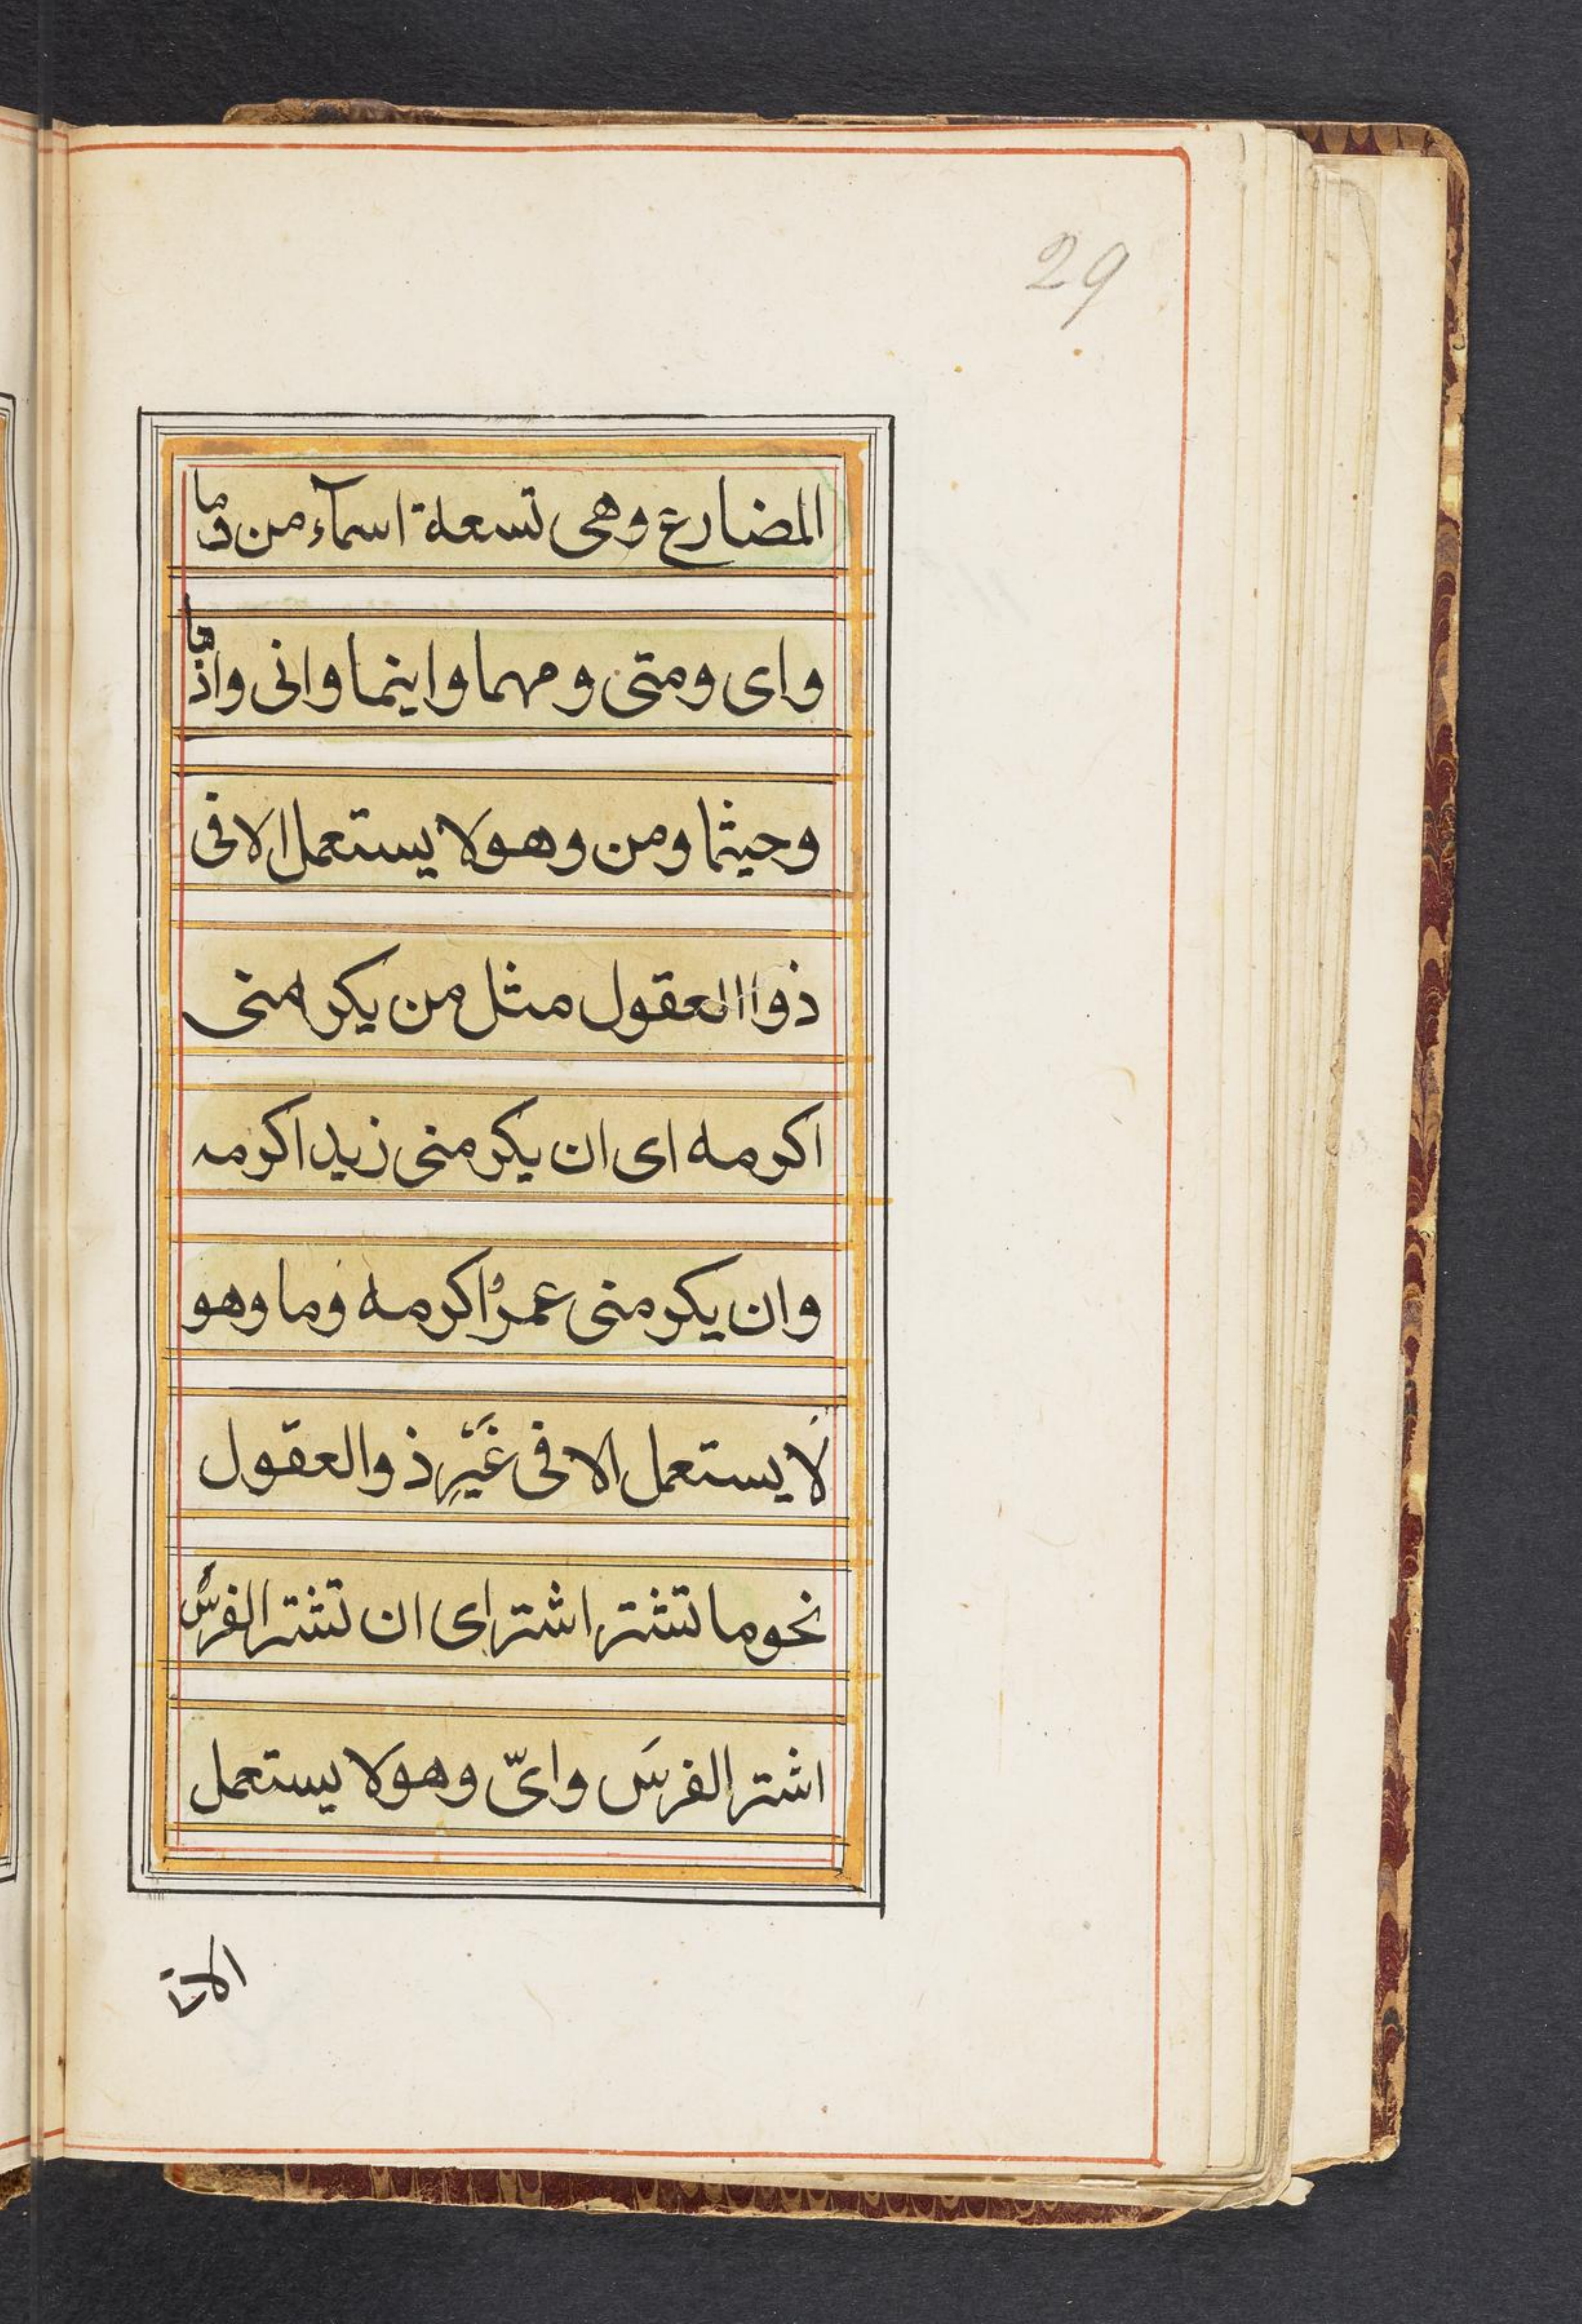 29
المضارع وهى تسعة اسمآء من وما
واى ومتى ومهما واينما وانى واذما
وحيثما ومن وهو لا يستعمل الا فى
ذوا العقول مثل من يكرمنى
اكرمه اى ان يكرمنى زيد اكرمه
وان يكرمنى عمرو اكرمه وما وهو
لا يستعمل الا فى غَيْرِ ذو العقول
نحو ما تشتر اشتر اى ان تشتر الفرسَ
اشتر الفرسَ واىّ وهو لا يستعمل